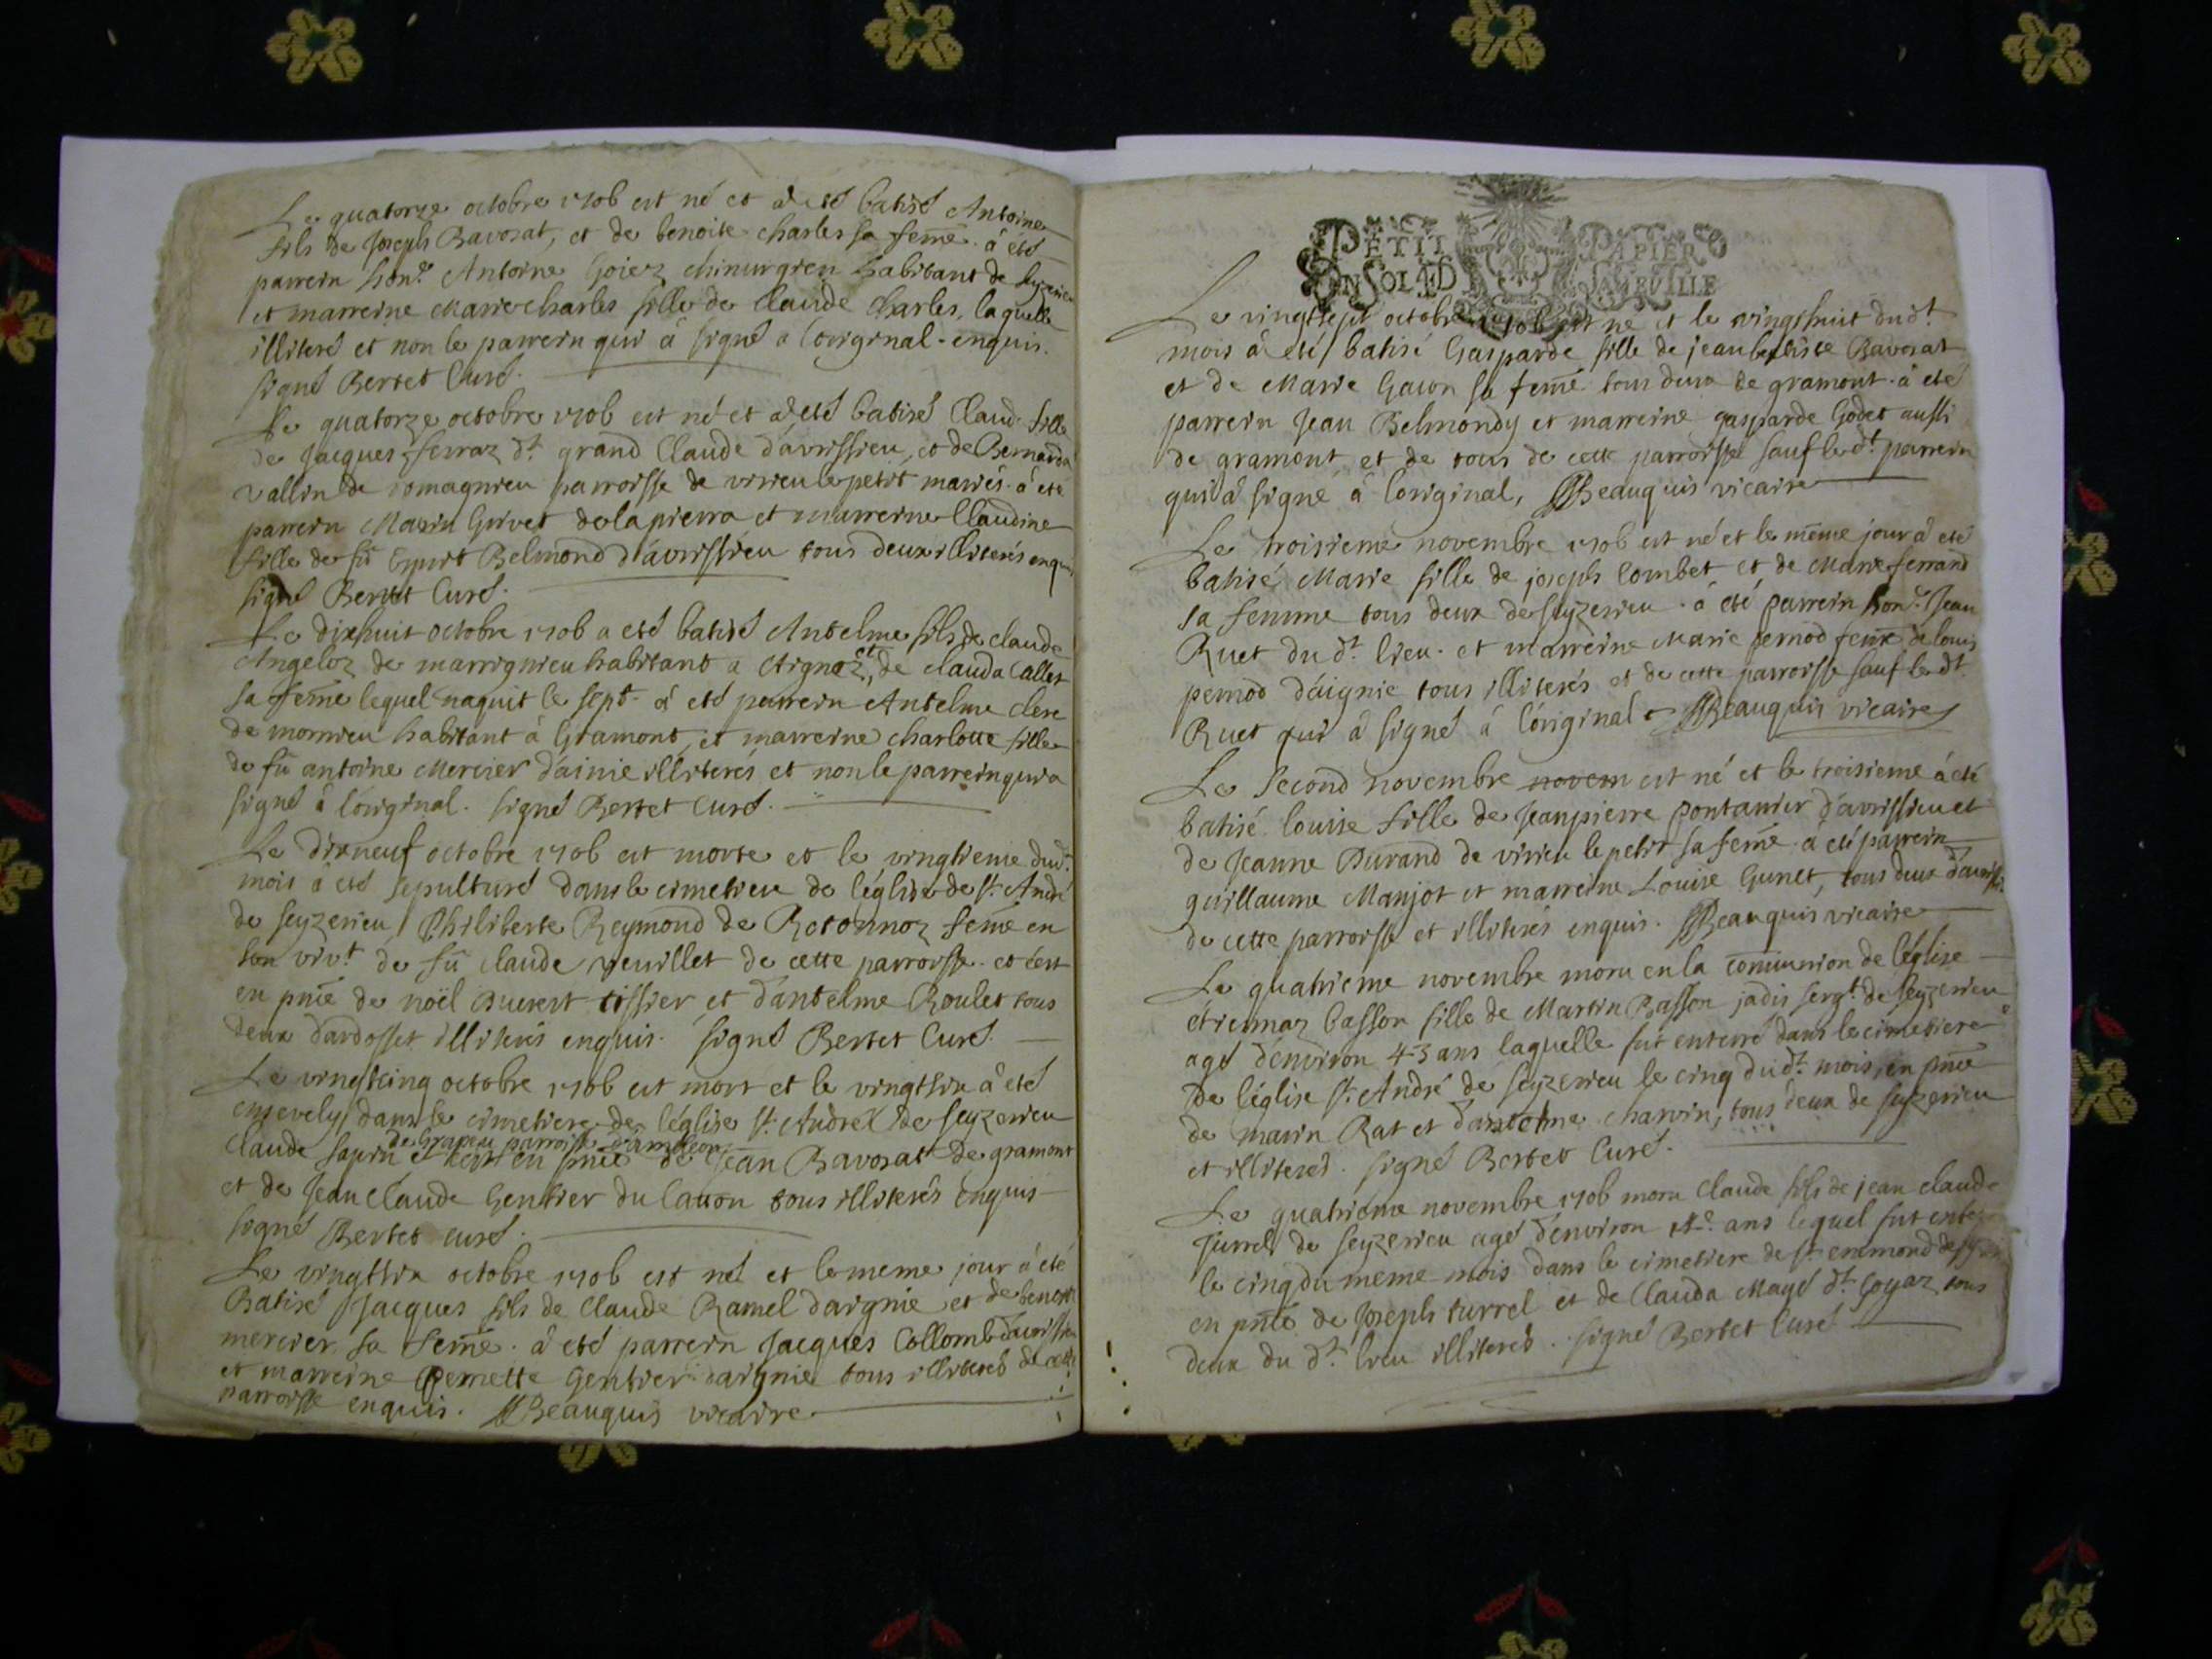 Le quatorze octobre 1706 est né et a eté batisé Antoine
fils de Joseph Bavosat, et de benoite charles sa feme. à eté
parrein hon.e Antoine Goiez chirurgien habitant de Seyzerieu
et marreine Marie charles fille de Claude Charles, laquelle
illiteré et non le parrein qui à signé a l'original. enquis.
signé Bertet Curé.
Le quatorze octobre 1706 est né et a eté batisé Claud. fille
de Jacques ferraz dt. grand Claude d'avrissieu, et de Bernarda
vallin de romagnieu parroisse de virieu le petit mariés. à eté
parrein Marin Girvet de lapierra et marreine Claudine
fille de fû Belmond d'avrissieu tous deux illiterés enquis
signé Bertet Curé.
Le dixhuit octobre 1706 a eté batisé Antelme fils de claude
Angeloz de marrignieu habitant a Aignoz, et de clauda Callet
sa feme lequel naquit le sept. à eté parrein Antelme clerc
de mornieu habitant à Gramont, et marreine charlotte fille
de fû antoine Mercier d'ainie illiterés et non le parrein qui a
signé à l'original. signé Bertet Curé.
Le dixneuf octobre 1706 est morte et le vingtieme dud.
mois à eté sepulturé dans le cimetieu de léglise de st. André
de seyzerieu Philiberte Reymond de Rotonnoz feme en
son viv.t de fû claude veuillet de cette parroisse. et c'est
en pnce de noël Buevert tissier et d'antelme Roulet tous
deux d'ardosset illiterés enquis. signé Bertet Curé.
Le vingtcinq octobre 1706 est mort et le vingtsix à eté
ensevely dans le cimetiere de léglise st. André de Seyzerieu
de parroisse d'ambleon
Claude sapin et c'est en pnce de Jean Bavosat de gramont
et de Jean Claude Gentier du lavon tous illiterés enquis
signé Bertet curé.
Le vingtsix octobre 1706 est né et le meme jour à eté
Batisé Jacques fils de Claude Ramel d'aignie et de benoite
mercier sa feme. à eté parrein Jacques Collomb d'avrissieu
et marreine Pernette Gentier d'aignie tous illiterés de cette
parroisse enquis. Beauquis vicaire
PETIT PAPIER
UN SOL 4D LA FEUILLE
Le vingtsept octobre 1706 est né et le vingthuit dudt.
mois à eté batisé Gasparde fille de jean batiste Bavosat
et de Marie Gacon sa feme tous deux de gramont. à eté
parrein Jean Belmondy et marreine gasparde Godet aussi
de gramont et de tous de cette parroisse sauf le dt. parrein
qui à signé à l'original, Beauquis vicaire
Le troisieme novembre 1706 est né et le même jour à eté
batisé Marie fille de joseph Combet et de Marie ferrand
sa femme tous deux de seyzerieu. à eté parrein hon.e Jean
Ruet du dt. lieu. et marreine Marie pernod feme de louis
pernod d'aignie tous illiterés et de cette parroisse sauf le dt.
Ruet qui à signé à l'original Beauquis vicaire
Le Second novembre novem est né et le troisieme à eté
batisé louise fille de Jeanpierre pontanier d'avrissieu et
de Jeanne Durand de virieu le petit sa feme. à eté parrein
guillaume Manjot et marreine Louise Gunet, tous deux d'avrissi.
de cette parroisse et illiterés enquis. Beauquis vicaire
Le quatrieme novembre moru en la communion de léglise
étiennaz basson fille de Martin Basson jadis sergt. de seyzerieu
agé d'environ 43 ans laquelle fut enterré dans le cimetiere
de léglise st. André de seyzerieu le cinq dudt. mois, en pnce
de marin Rat et d'antelme charvin, tous deux de seyzerieu
et illiterés. signé Bertet Curé.
Le quatrieme novembre 1706 moru Claude fils de jean claude
Turrel de seyzerieu agé d'environ ans lequel fut enterré
le cinq du meme mois dans le cimetiere de st. enimond de
en pnce de Joseph turrel et de Clauda Magé dt. goyaz tous
deux du dt. lieu illiterés. signé Bertet Curé